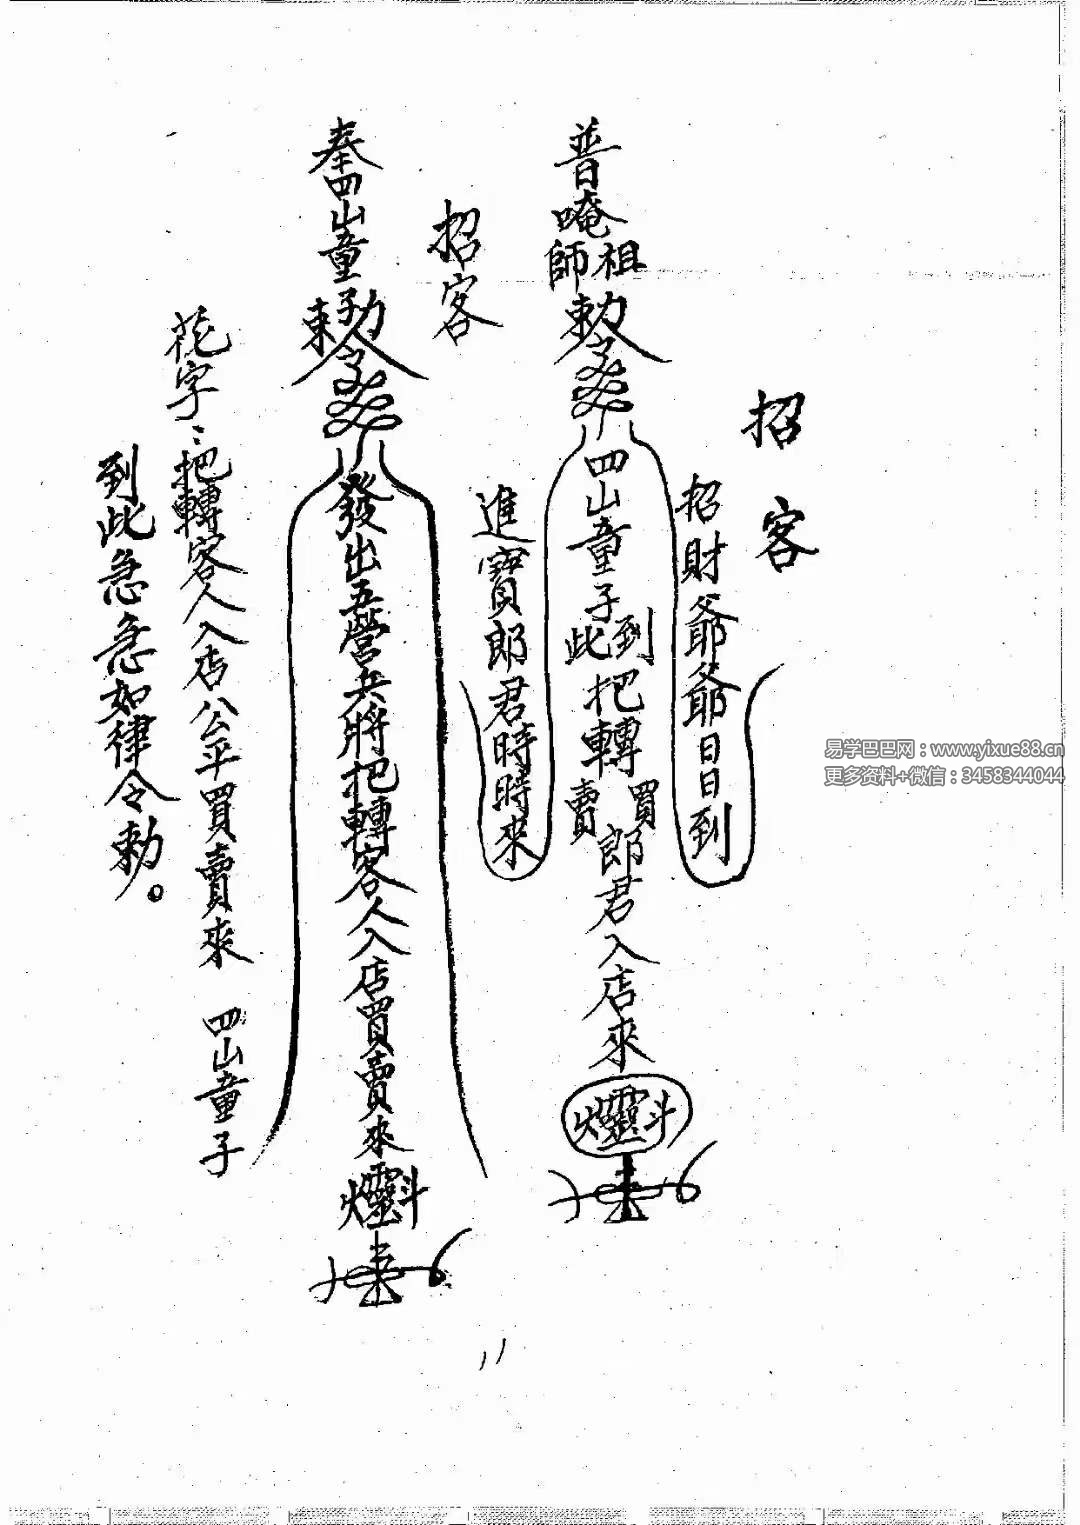 招客
招財爺爺日日到
普唵祖師勅
四山童子到此把轉買賣郎君入店來
進寶郎君時時來
招客
奉四山童子勅
發出五營兵將把轉客人入店買賣來
花字：把轉客人入店公平買賣來　四山童子
到此急急如律令勅。
11
易学巴巴网：www.yixue88.cn
更多资料+微信：3458344044